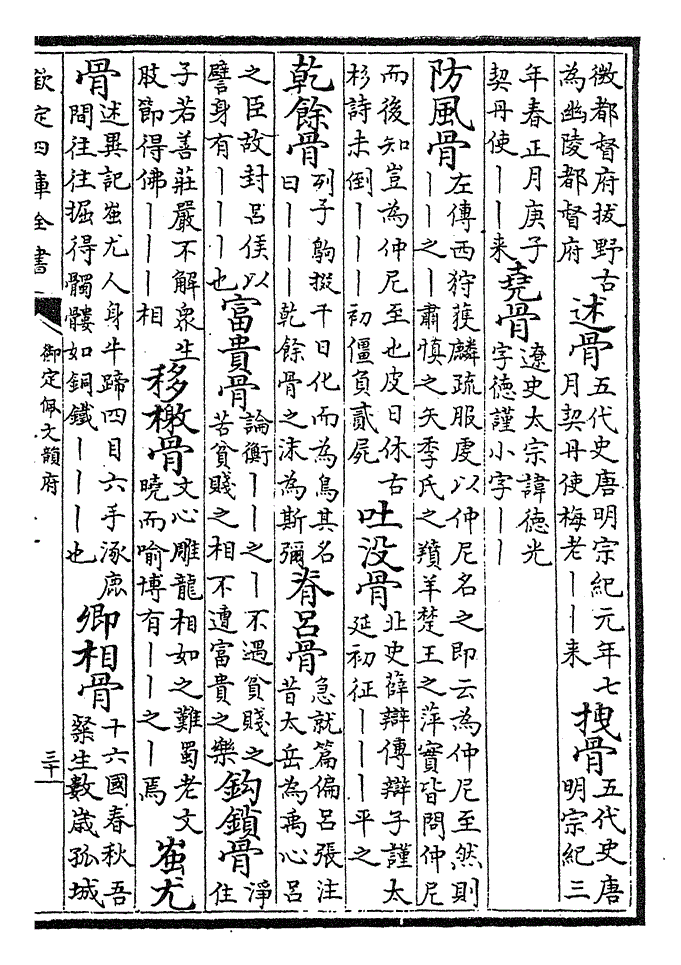 徵都督府拔野古
為幽陵都督府
述骨
五代史唐明宗紀元年七
月契丹使梅老丨丨来
拽骨
五代史唐
明宗紀三
年春正月庚子
契丹使丨丨来
堯骨
遼史太宗諱德光
字德謹小字丨丨
防風骨
左傳西狩獲麟疏服虔以仲尼名之即云為仲尼至然則
丨丨之丨肅慎之矢季氏之羵羊楚王之萍實皆問仲尼
而後知豈為仲尼至也皮日休古
杉詩未倒丨丨丨初僵負貳屍
吐没骨
北史薛辯傳辯子謹太
延初征丨丨丨平之
乾餘骨
列子鴝掇千日化而為鳥其名
曰丨丨丨乾餘骨之沫為斯彌
脊呂骨
急就篇偏呂張注
昔太岳為禹心呂
之臣故封呂侯以
譬身有丨丨也
富貴骨
論衡丨丨之丨不遇貧賤之
苦貧賤之相不遭富貴之樂
鈎鎖骨
淨
住
子若善莊嚴不解衆生
肢節得佛丨丨丨相
移檄骨
文心雕龍相如之難蜀老文
曉而喻博有丨丨之丨焉
蚩尤
骨
述異記蚩尤人身牛蹄四目六手涿鹿
間往往掘得髑髏如銅鐵丨丨丨也
卿相骨
十六國春秋吾
粲生數歲孤城
欽定四庫全書
御定佩文韻府